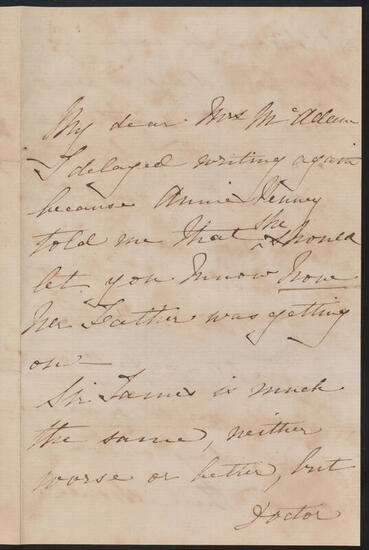 My dear Mrs McAdam
I delayed writing again
because Annie Kenney
told me that she should
let you know how
her Father was getting
on -
Sir James is much
the same, neither
worse or better, but
Doctor